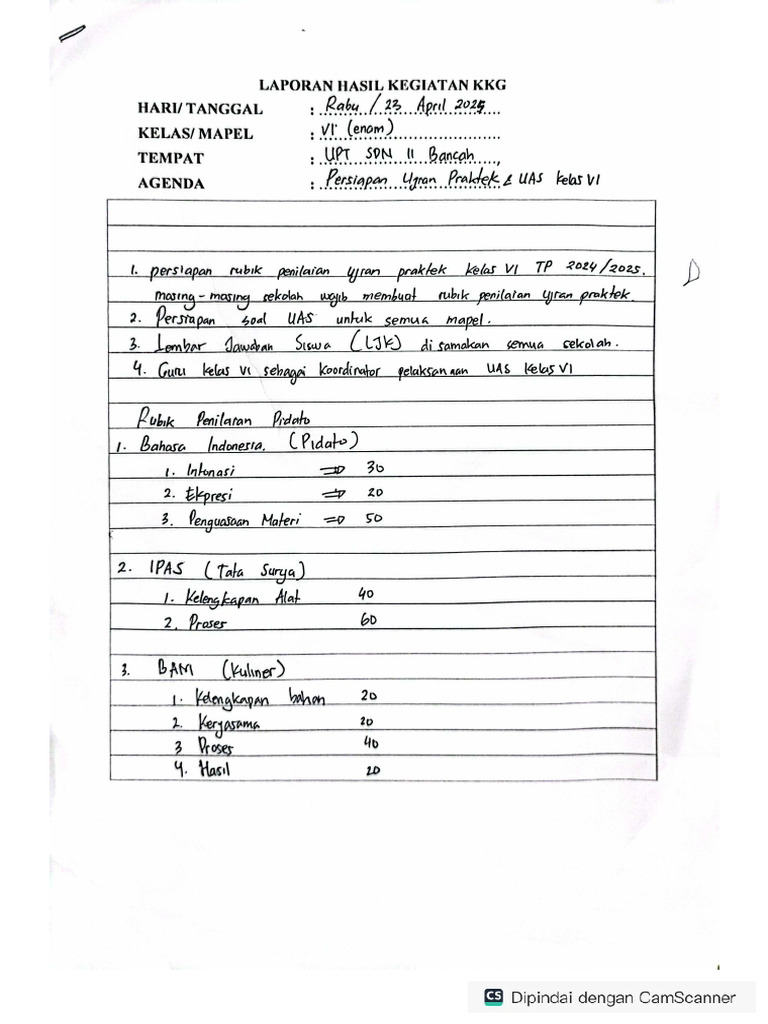 LAPORAN HASIL KEGIATAN KKG
HARI/ TANGGAL : Rabu / 23 April 2025
KELAS/ MAPEL : VI (enam)
TEMPAT : UPT SDN 11 Bancah
AGENDA : Persiapan Ujian Praktek & UAS kelas VI
1. persiapan rubik penilaian ujian praktek kelas VI TP 2024/2025.
masing-masing sekolah wajib membuat rubik penilaian ujian praktek.
2. Persiapan soal UAS untuk semua mapel.
3. Lembar Jawaban Siswa (LJK) di samakan semua sekolah.
4. Guru kelas VI sebagai koordinator pelaksanaan UAS kelas VI
Rubik Penilaian Pidato
1. Bahasa Indonesia. (Pidato)
1. Intonasi ⇒ 30
2. Ekpresi ⇒ 20
3. Penguasaan Materi ⇒ 50
2. IPAS (Tata Surya)
1. Kelengkapan Alat 40
2. Proses 60
3. BAM (Kuliner)
1. Kelengkapan bahan 20
2. Kerjasama 20
3 Proses 40
4. Hasil 20
CS Dipindai dengan CamScanner